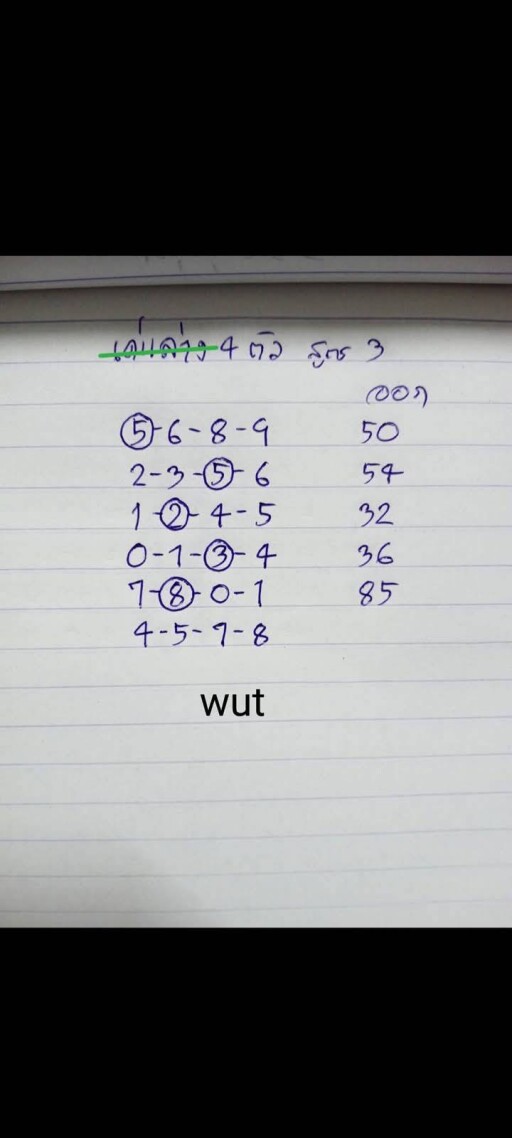 เด่นล่าง 4 ตัว สูตร 3
ออก
5-6-8-9 50
2-3-5-6 54
1-2-4-5 32
0-1-3-4 36
7-8-0-1 85
4-5-7-8
wut